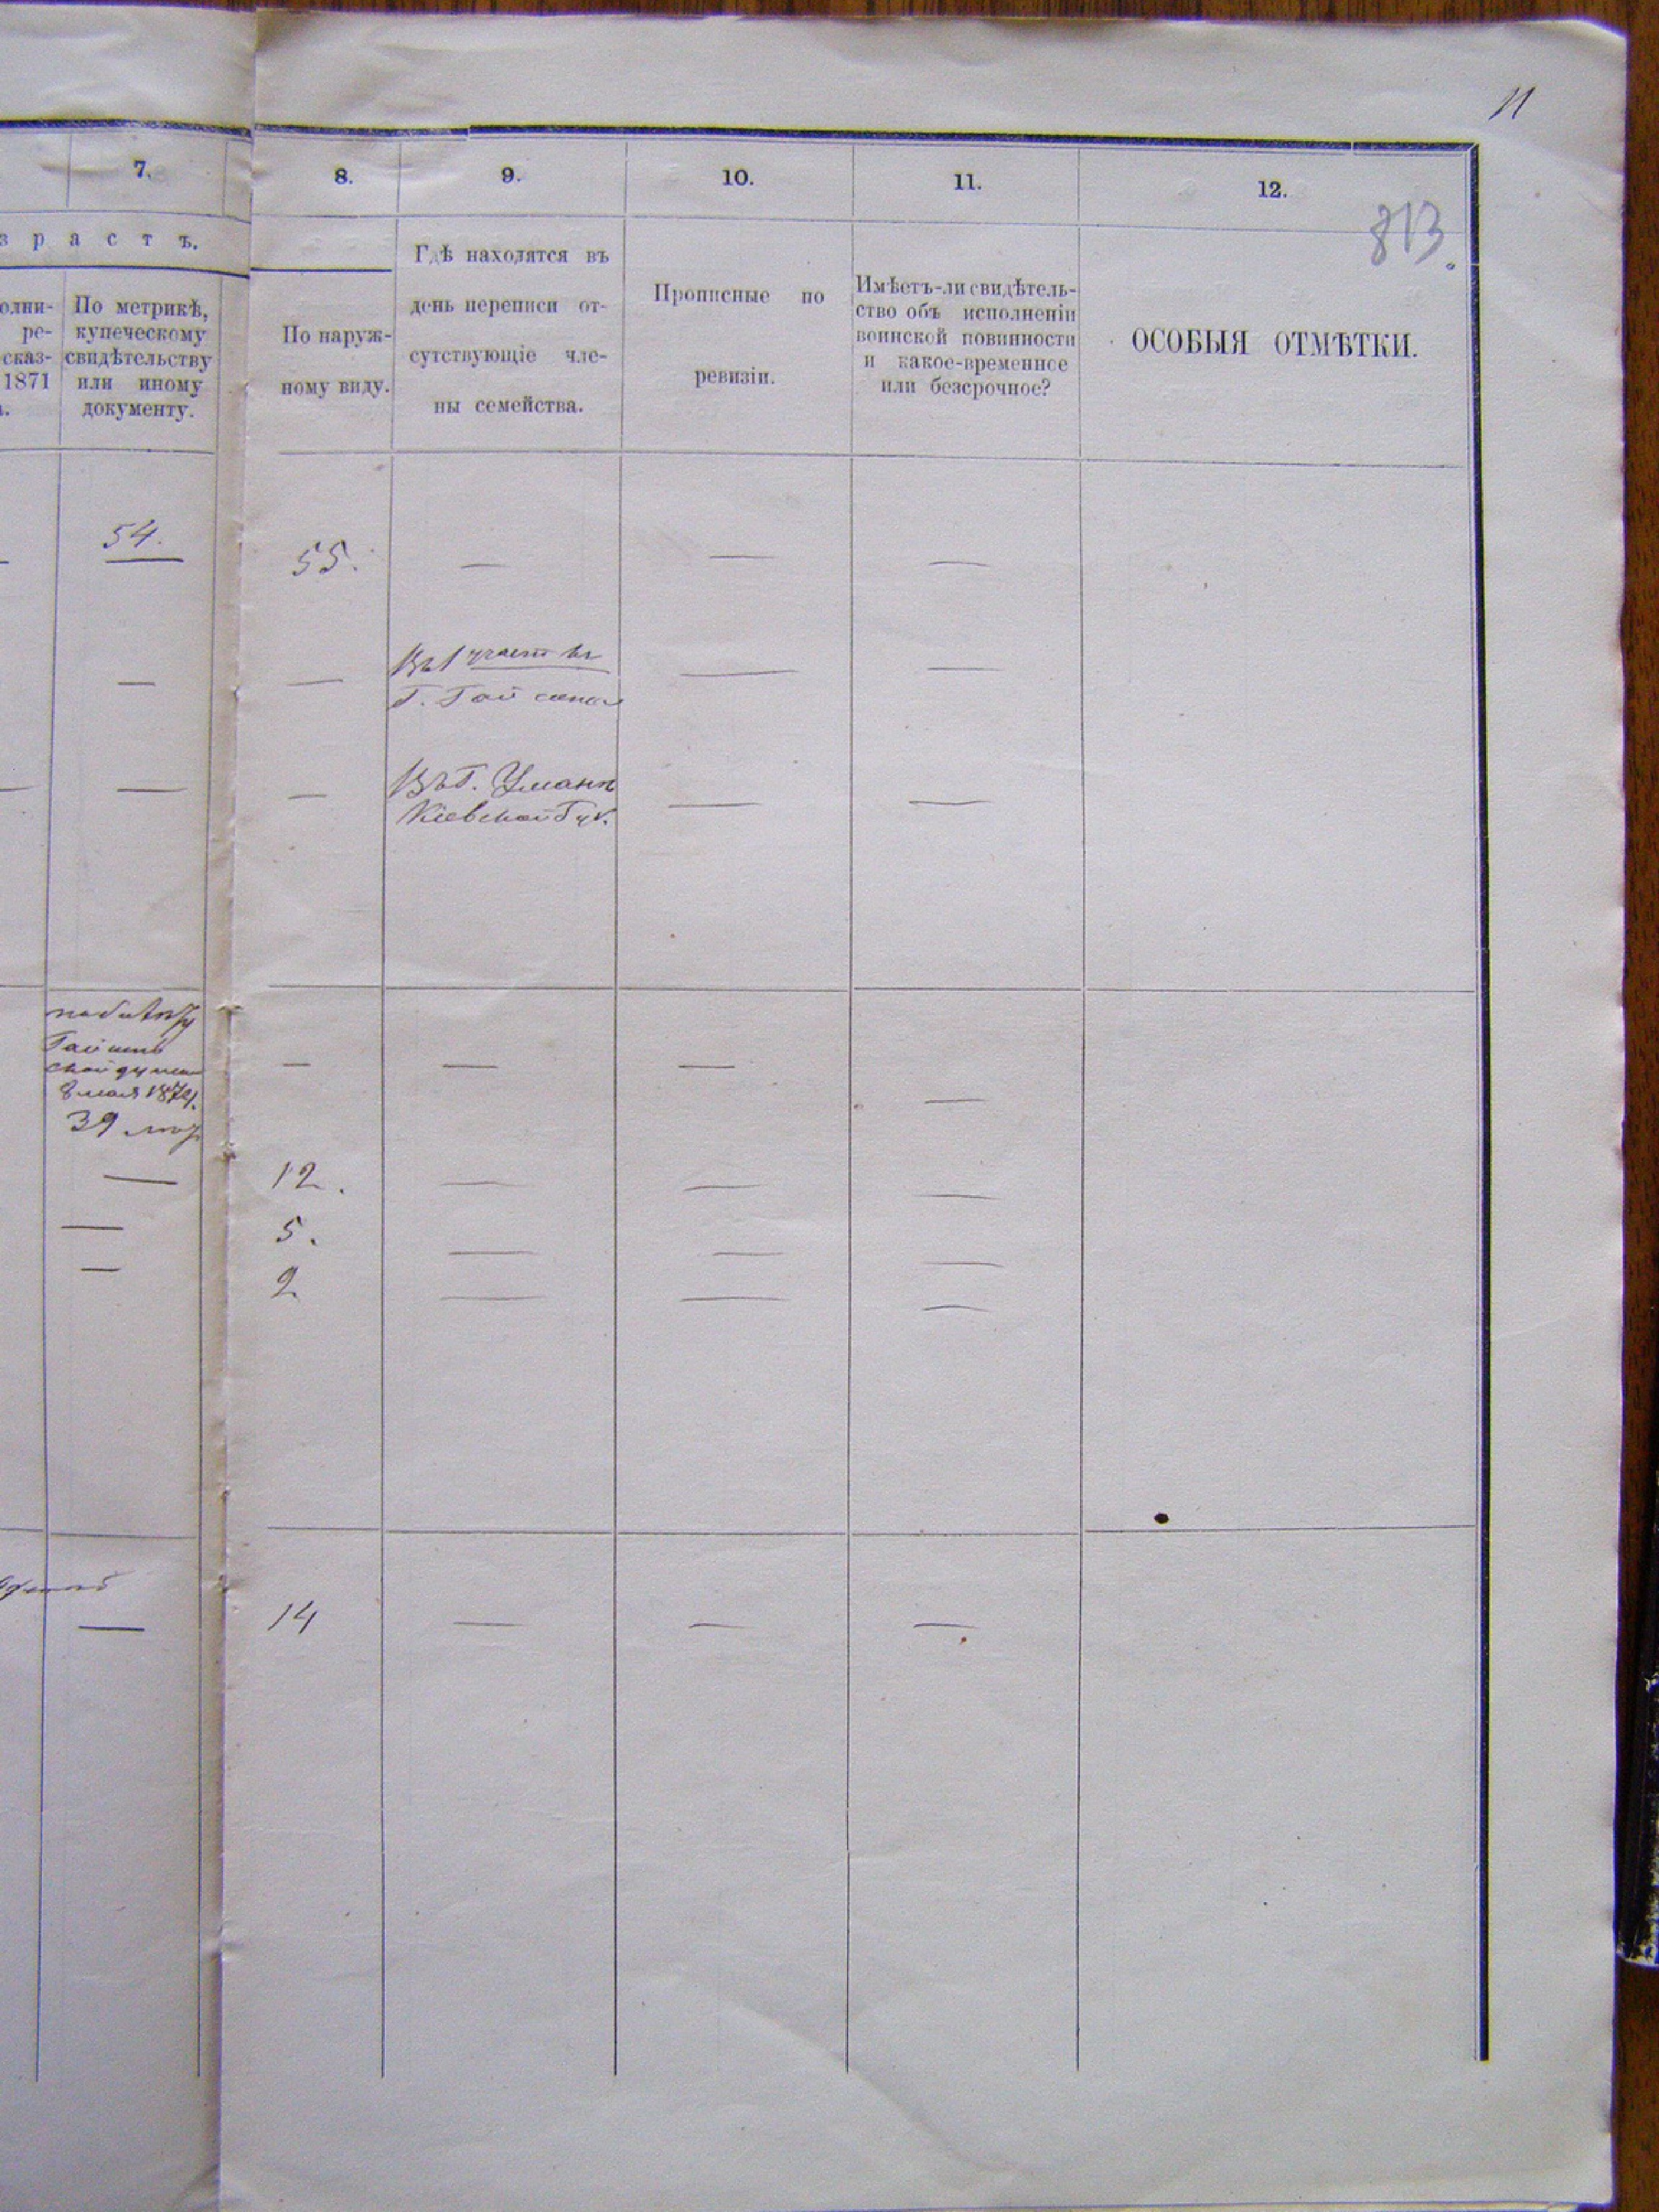 11
813.
7.
8.
9.
10.
11.
12.
з р а с т ъ.
олни-
ре-
сказ-
1871
По метрикѣ,
купеческому
свидѣтельству
или иному
документу.
По наруж-
ному виду.
Гдѣ находятся въ
день переписи от-
сутствующіе чле-
ны семейства.
Прописные по
ревизіи.
Имѣетъ-ли свидѣтель-
ство объ исполненіи
воинской повинности
и какое-временное
или безсрочное?
ОСОБЫЯ ОТМѢТКИ.
54.
55.
—
—
—
—
—
Въ 1
Г. Гайсина
—
—
—
—
—
Въ Г. Умани
Кіевской Губ.
—
—
Гайсин
ской думы
8 мая 1874.
39
—
—
—
—
—
12.
—
—
—
—
5.
—
—
—
—
2
—
—
—
—
14
—
—
—